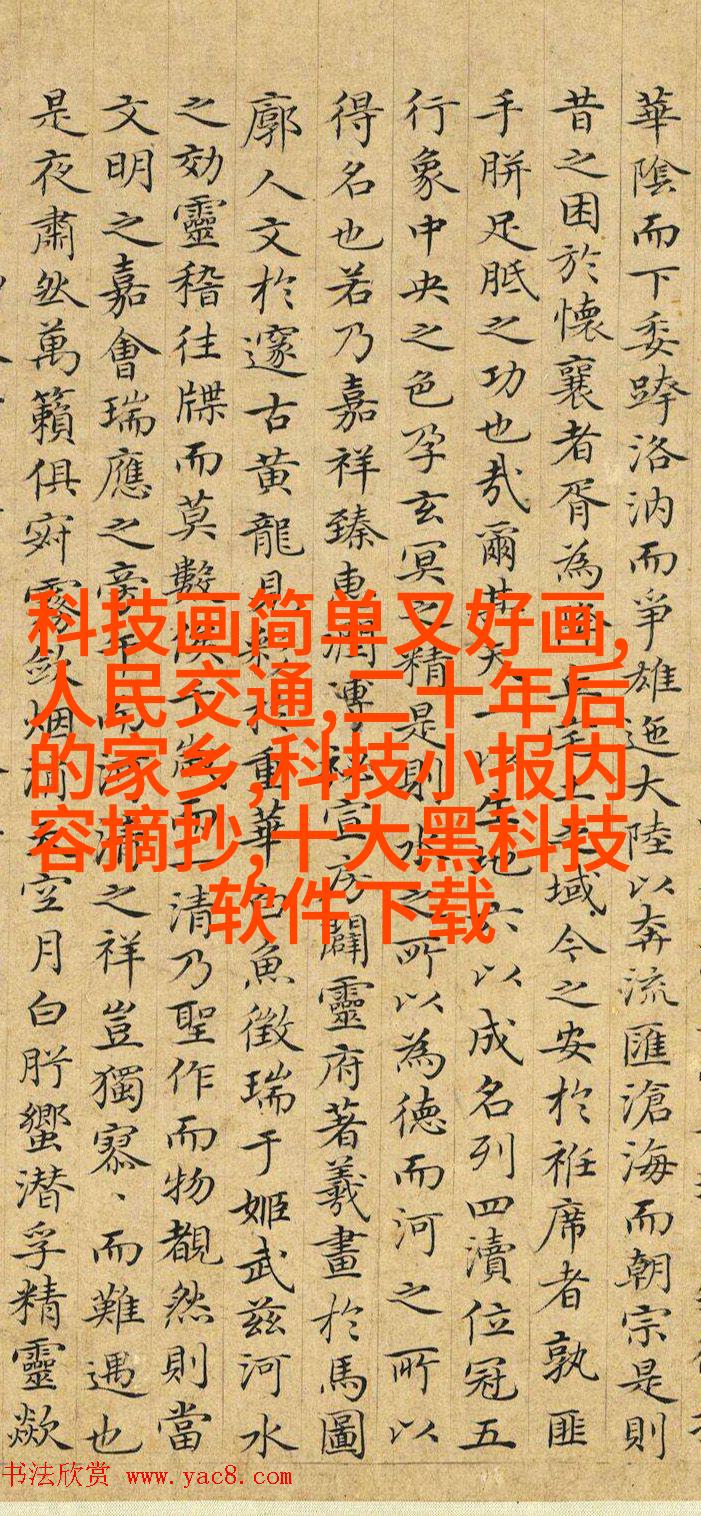 華陰而下委跨洛汭而爭雄迤大陸以奔流匯滄海而朝宗是則
昔之困於懷襄者胥為丘宅土域今之安於袵席者孰匪
手胼足胝之功也哉爾其天一以生地六以成名列四瀆位冠五
行象中央之色孕玄冥之精是則水之所以為德而河之所以
得名也若乃嘉祥臻惠潤溥宣房闢靈府著羲畫於馬圖
廓人文於邃古黃龍見於重華白魚徵瑞于姬武茲河水
之効靈稽往牒而莫數俟千歲而一清乃聖作而物覩然則當
文明之嘉會瑞應之年河清之祥豈獨寥、而難遇也
是夜肅然萬籟俱寂霧斂烟消天空月白肸蠁潛孚精靈歘
科技画简单又好画,
人民交通,二十年后
的家乡,科技小报内
容摘抄,十大黑科技
软件下载
书法欣赏 www.yac8.com